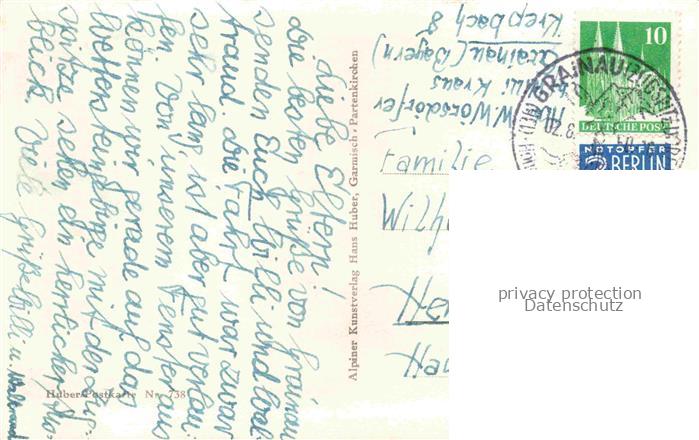 Liebe Eltern!
die besten Grüße von Grainau
senden Euch Willi und Wal-
traud. Die Fahrt war zwar
sehr lang ist aber gut verlau-
fen. Von unserem Fenster aus
können wir gerade auf das
Wettersteingebirge mit der Zug-
spitze sehen ein herrlicher An-
blick. Viele Grüße Willi u. Waltraud
Huber-Postkarte Nr. 738
Alpiner Kunstverlag Hans Huber, Garmisch-Partenkirchen
W. Wörsdörfer
Kraus
Grainau (Bayern)
Krepbach 8
10
DEUTSCHE POST
NOTOPFER
BERLIN
GRAINAU
Familie
Wilh
Ha
privacy protection
Datenschutz